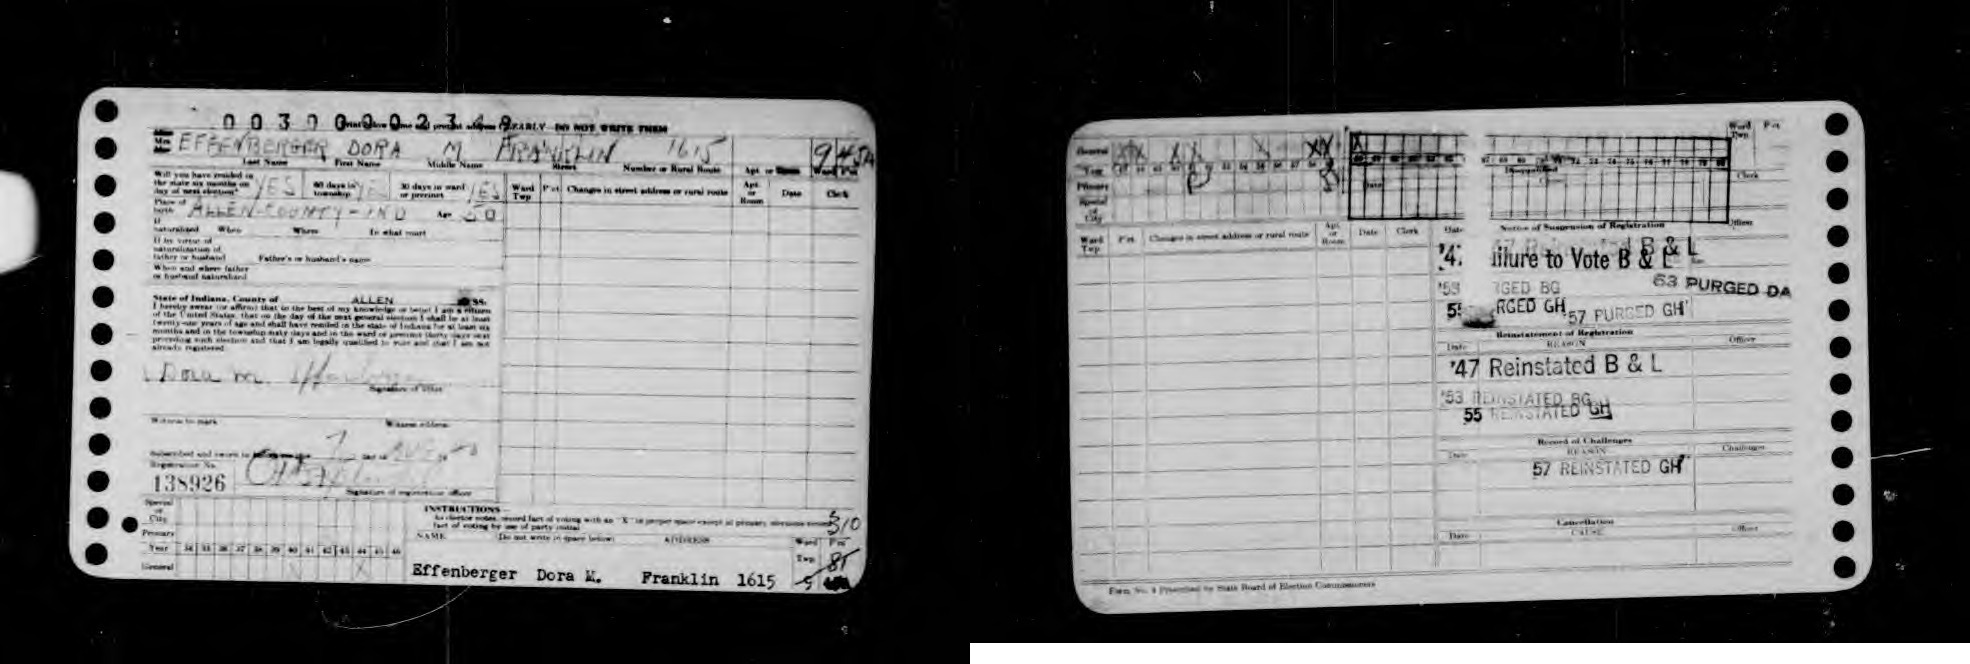 00300002349
CLEARLY DO NOT WRITE THEM
Mrs EFFENBERGER DORA M FRANKLIN 1615 9
Last Name First Name Middle Name Street Number or Rural Route Apt or Room Ward Pct
Will you have resided in
the state six months on
day of next election? YES 60 days in
township YES 30 days in ward
or precinct YES
Ward
Twp Pct Changes in street address or rural route Apt
or
Room Date Clerk
Place of
birth ALLEN-COUNTY-IND Age
If
naturalized When Where In what court
If by virtue of
naturalization of
father or husband Father's or husband's name
When and where father
or husband naturalized
State of Indiana, County of ALLEN SS.
I hereby swear (or affirm) that to the best of my knowledge or belief I am a citizen
of the United States, that on the day of the next general election I shall be at least
twenty-one years of age and shall have resided in the state of Indiana for at least six
months and in the township sixty days and in the ward or precinct thirty days next
preceding such election and that I am legally qualified to vote and that I am not
already registered
Dora M. Effenberger
Signature of voter
Witness to mark Witness address
Subscribed and sworn to 7 day of AUG
Registration No.
138926
Signature of registration officer
Special
or
City
Primary
Year 34 35 36 37 38 39 40 41 42 43 44 45 46
General X X
INSTRUCTIONS
As elector votes, record fact of voting with an "X" in proper space except at primary elections record
fact of voting by use of party initial
310
NAME Do not write in space below: ADDRESS Ward Pct
Twp 85
Effenberger Dora M. Franklin 1615 9
General
Year
Primary
Special
or
City
Ward
Twp Pct
Clerk
Officer
Ward
Twp Pct Changes in street address or rural route Apt
or
Room Date Clerk
Date Notice of Suspension of Registration
'47 Failure to Vote B & L
'53 PURGED BG 63 PURGED DA
55 PURGED GH '57 PURGED GH
Reinstatement of Registration
Date REASON Officer
'47 Reinstated B & L
'53 REINSTATED BG
55 REINSTATED GH
Record of Challenges
Date REASON Challenger
57 REINSTATED GH
Cancellation
Date CAUSE Officer
Form No. 4 Prescribed by State Board of Election Commissioners